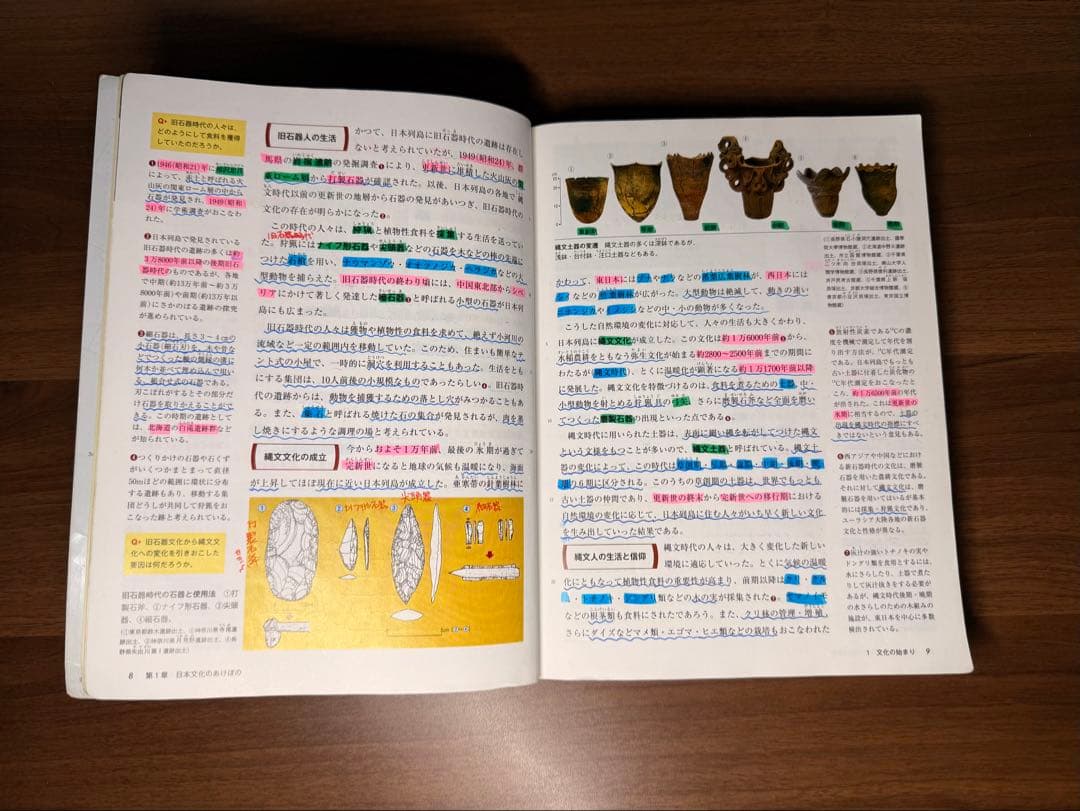 Q 旧石器時代の人々は、
どのようにして食料を獲得
していたのだろうか。
❶1946(昭和21)年に相沢忠洋
灰層の関東ローム層の中から
石器が発見され、1949(昭和
24)年に学術調査がおこなわ
れた。
❷日本列島で発見されている
旧石器時代の遺跡の多くは約
3万8000年前以降の後期旧石
器時代のものであるが、各地
で中期(約13万年前~約3万
8000年前)や前期(約13万年以
前)にさかのぼる遺跡の探究
が進められている。
❸細石器は、長さ3~4cmの
小石器(細石刃)を、木や骨な
どでつくった軸の側縁の溝に
何本か並べて埋め込んで用い
る、組合せ式の石器である。
刃こぼれがするとその部分だ
け石器を取りかえることがで
きる。この時期の遺跡として
は、北海道の白滝遺跡群など
が知られている。
❹つくりかけの石器や石くず
がいくつかまとまって直径
50mほどの範囲に環状に分布
する遺跡もあり、移動する集
団どうしが共同して狩猟をお
こなった跡と考えられている。
Q 旧石器文化から縄文文
化への変化を引きおこした
要因は何だろうか。
旧石器時代の石器と使用法 ①打
製石斧、②ナイフ形石器、③尖頭
器、④細石器。
8 第1章 日本文化のあけぼの
旧石器人の生活
かつて、日本列島に旧石器時代の遺跡は存在し
ないと考えられていたが、1949(昭和24)年、群
馬県の岩宿遺跡の発掘調査❶により、更新世に堆積した火山灰の関
東ローム層から打製石器が確認された。以後、日本列島の各地で縄
文時代以前の更新世の地層から石器の発見があいつぎ、旧石器時代の
文化の存在が明らかになった❷。
この時代の人々は、狩猟と植物性食料を採集する生活を送ってい
旧石器時代
た。狩猟にはナイフ形石器や尖頭器などの石器を木などの棒の先端に
つけた石槍を用い、ナウマンゾウ・オオツノジカ・ヘラジカなどの大
型動物を捕らえた。旧石器時代の終わり頃には、中国東北部からシベ
リアにかけて著しく発達した細石器❸と呼ばれる小型の石器が日本列
島にも広まった。
旧石器時代の人々は獲物や植物性の食料を求めて、絶えず小河川の
流域など一定の範囲内を移動していた。このため、住まいも簡単なテ
ント式の小屋で、一時的に洞穴を利用することもあった。生活をとも
にする集団は、10人前後の小規模なものであったらしい❹。旧石器時
代の遺跡からは、動物を捕獲するための落とし穴がみつかることもあ
る。また、礫石と呼ばれる焼けた石の集合が発見されるが、肉を蒸
し焼きにするような調理の場と考えられている。
縄文文化の成立
今からおよそ1万年前、最後の氷期が過ぎて
完新世になると地球の気候も温暖になり、海面
が上昇してほぼ現在に近い日本列島が成立した。亜寒帯の針葉樹林に
打製石斧
ナイフ形石器
尖頭器
細石器
① ② ③ ④
縄文土器の変遷 縄文土器の多くは深鉢であるが、
浅鉢・台付鉢・注口土器などもある。
かわって、東日本にはブナやナラなどの落葉広葉樹林が、西日本には
シイなどの照葉樹林が広がった。大型動物は絶滅して、動きの速い
ニホンジカとイノシシなどの中・小の動物が多くなった。
こうした自然環境の変化に対応して、人々の生活も大きくかわり、
日本列島に縄文文化が成立した。この文化は約1万6000年前❺から、
水稲農耕をともなう弥生文化が始まる約2800~2500年前までの期間に
わたるが(縄文時代)、とくに温暖化が顕著になる約1万1700年前以降
に発展した。縄文文化を特徴づけるのは、食料を煮るための土器、中・
小型動物を射とめる狩猟具の弓矢、さらに磨製石斧など全面を磨い
てつくった磨製石器の出現といった点である❻。
縄文時代に用いられた土器は、表面に細い縄を転がしてつけた縄文
という文様をもつことが多いので、縄文土器と呼ばれている。縄文土
器の変化によって、この時代は草創期・早期・前期・中期・後期・晩
期の6期に区分される。このうちの草創期の土器は、世界でもっとも
古い土器の仲間であり、更新世の終末から完新世への移行期における
自然環境の変化に応じて、日本列島に住む人々がいち早く新しい文化
を生み出していった結果である。
縄文人の生活と信仰
縄文時代の人々は、大きく変化した新しい
環境に適応していった。とくに気候の温暖
化にともなって植物性食料の重要性が高まり、前期以降はクリ・クル
ミ・トチノキ・ドングリ類などの木の実が採集された❼。ヤマノイモ
などの根茎類も食料にされたであろう。また、クリ林の管理・増植、
さらにダイズなどマメ類・エゴマ・ヒエ類などの栽培もおこなわれた
❺放射性炭素である¹⁴Cの濃
度を機械で測定して年代を割
り出す方法が、¹⁴C年代測定
である。日本でもっとも古い
土器に付着した炭化物の
¹⁴C年代測定をおこなったと
ころ、約1万6500年前の年代
が出された。これは更新世の
氷期に相当するので、土器の
出現を縄文時代の指標にすべ
きではないという意見もある。
❻西アジアや中国などにおけ
る新石器時代の文化は、磨製
石器を用いた農耕文化である。
それに対して縄文文化は、磨
製石器を用いてはいるが基本
的には採集・狩猟文化であり、
ユーラシア大陸各地の新石器
文化と性格が異なる。
❼灰汁の強いトチノキの実や
ドングリ類を食用とするには、
水にさらしたり、土器で煮た
りして灰汁抜きをする必要が
あるが、縄文時代後期~晩期
の水さらしのための木組みの
施設が、東日本を中心に多数
検出されている。
1 文化の始まり 9